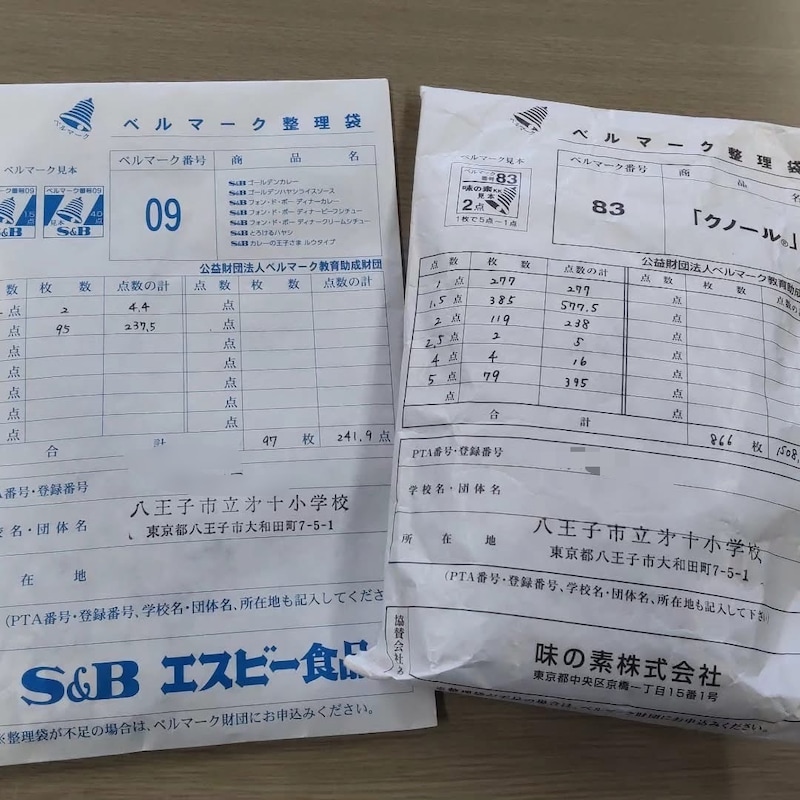 ベルマーク
ベルマーク整理袋
ベルマーク見本
ベルマーク番号
商品名
ーク番号09
ベルマーク番号09
1.5
4.0
見本
S&B
S&B
09
S&B ゴールデンカレー
S&B ゴールデンハヤシライスソース
S&B フォン・ド・ボー ディナーカレー
S&B フォン・ド・ボー ディナービーフシチュー
S&B フォン・ド・ボー ディナークリームシチュー
S&B とろけるハヤシ
S&B カレーの王子さま ルウタイプ
公益財団法人ベルマーク教育助成財団
数 枚数 点数の計 点数 枚数 点数の計
点 2 4.4 点
点 95 237.5 点
点 点
点 点
点 点
点 点
点 点
合計 97 枚 241.9 点
番号・登録番号
名・団体名 八王子市立才十小学校
東京都八王子市大和田町7-5-1
在地
(PTA番号・登録番号、学校名・団体名、所在地も記入してくださ
S&B エスビー食品
※整理袋が不足の場合は、ベルマーク財団にお申込みください。
ベルマーク
ベルマーク整理袋
ベルマーク見本
ベルマーク番号
商品名
ベルマーク
番号83
味の素KK
見本
2点
1枚で5点~1点
83
「クノール®」
公益財団法人ベルマーク教育助成
点数 枚数 点数の計 点数 枚数 点数の
1 点 277 277 点
1.5 点 385 577.5 点
2 点 119 238 点
2.5 点 2 5 点
4 点 4 16 点
5 点 79 395 点
点 点
合計 866 枚 1508.
PTA番号・登録番号
学校名・団体名
八王子市立才十小学校
所在地
東京都八王子市大和田町7-5-1
(PTA番号・登録番号、学校名・団体名、所在地も記入して下さい)
協賛会社名
味の素株式会社
東京都中央区京橋一丁目15番1号
整理袋が不足の場合は、ベルマーク財団にお申込みください。